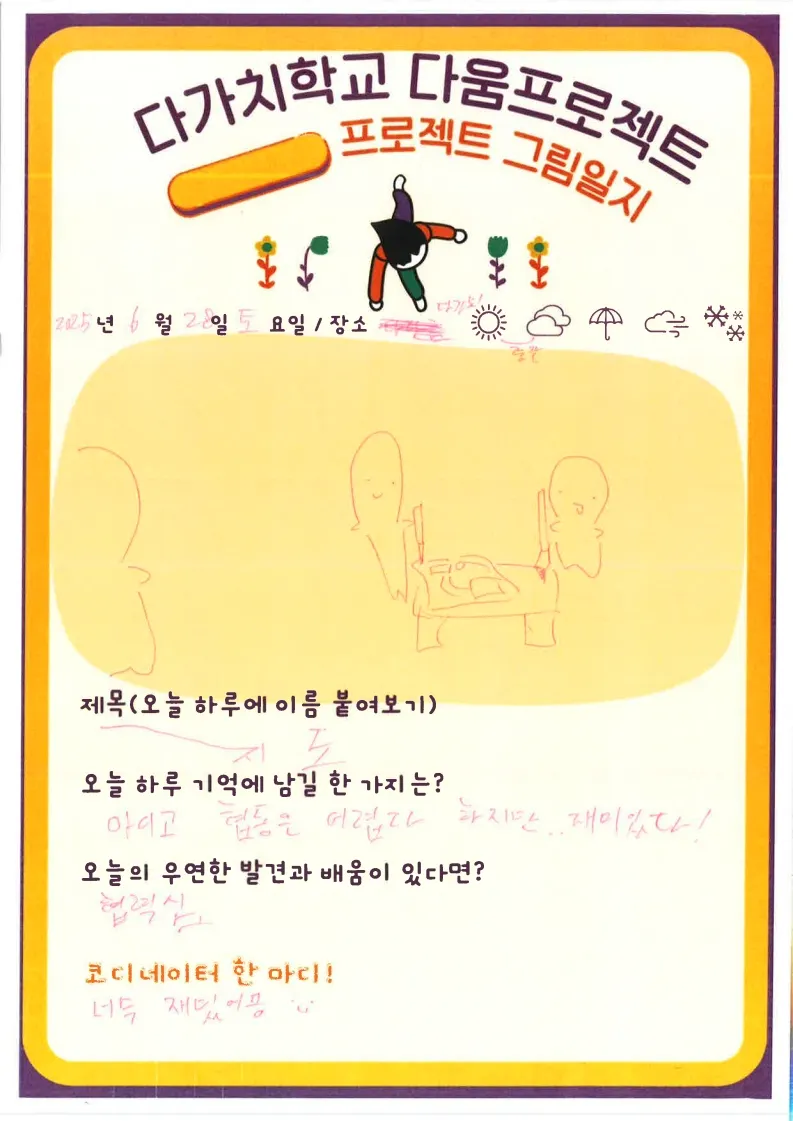 다가치학교 다움프로젝트
프로젝트 그림일지
2025년 6월 28일 토요일 / 장소
제목(오늘 하루에 이름 붙여보기)
지도
오늘 하루 기억에 남길 한 가지는?
아이고 협동은 어렵다 하지만..재미있다!
오늘의 우연한 발견과 배움이 있다면?
협력심
코디네이터 한 마디!
너두 재밌어뭉